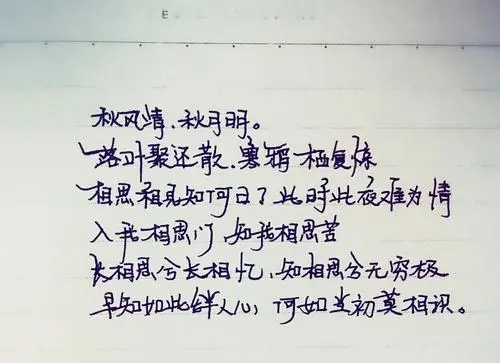 E
秋风情、秋月明。
落叶聚还散、寒鸦栖复惊
相思相见知何日？此时此夜难为情
入我相思门，知我相思苦
长相思兮长相忆，知相思兮无穷极
早知如此绊人心，何如当初莫相识。